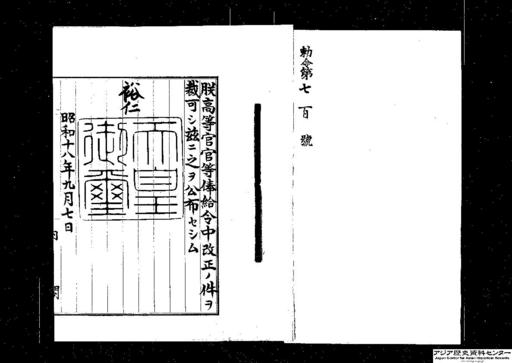 勅令第七百號
朕高等官官等俸給令中改正ノ件ヲ
裁可シ茲ニ之ヲ公布セシム
裕仁
天皇
御璽
昭和十八年九月七日
内閣
アジア歴史資料センター
Japan Center for Asian Historical Records